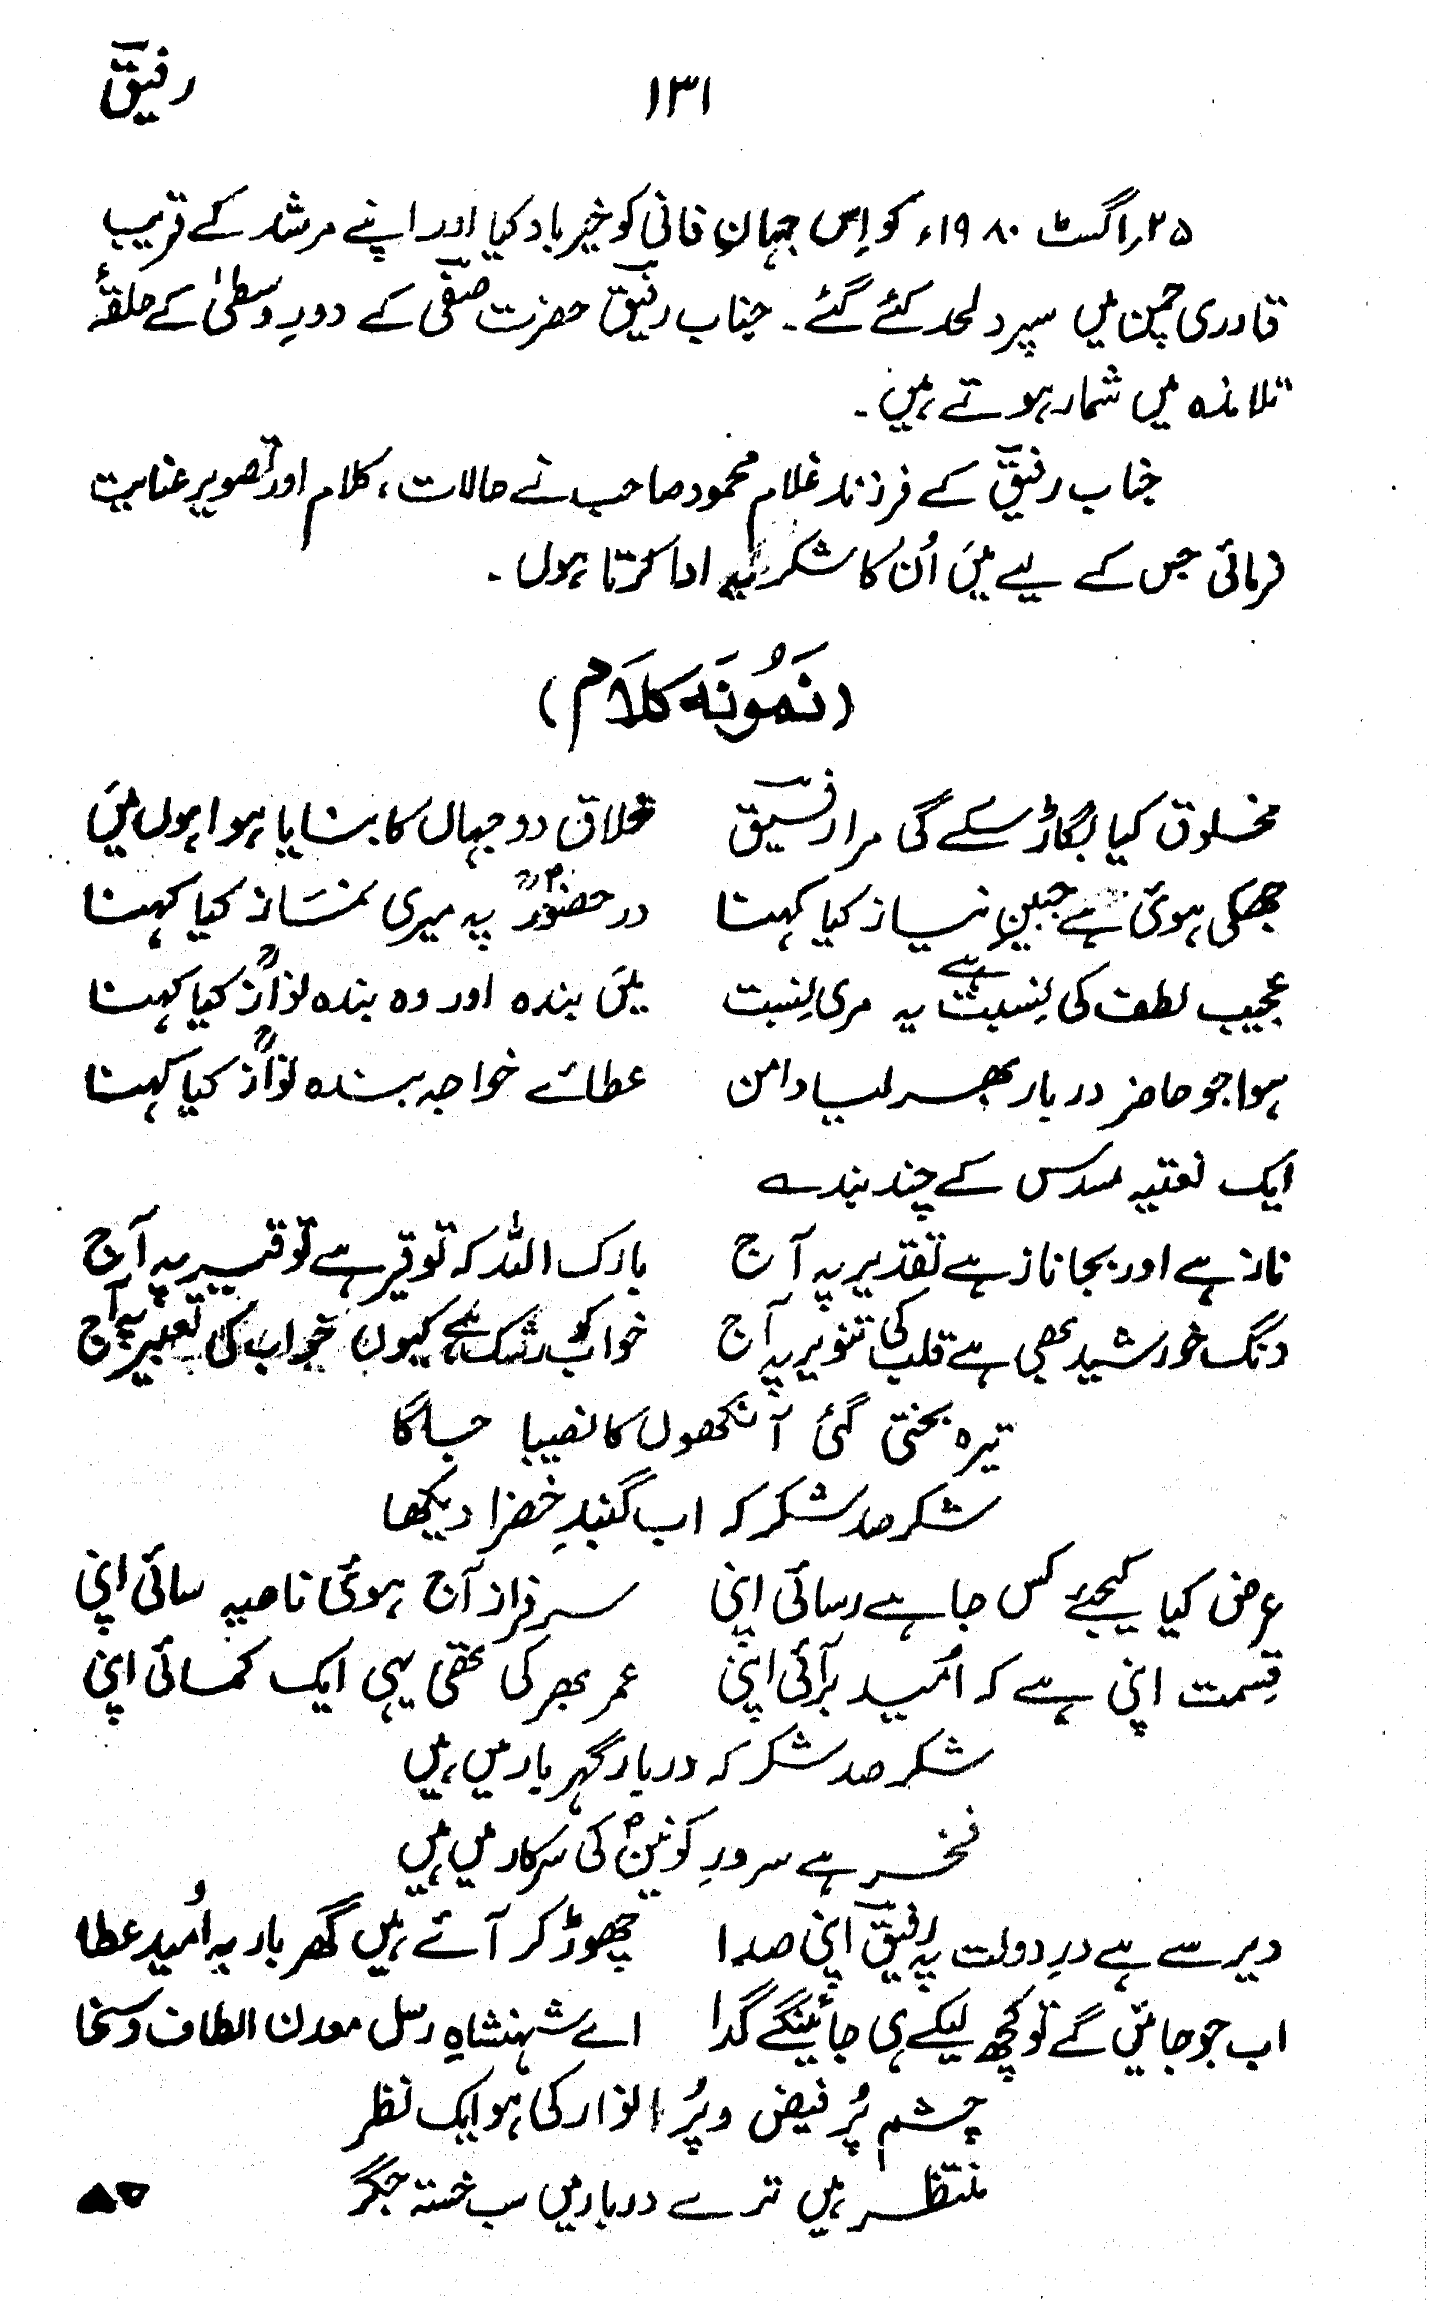 ۱۳۱ رفیقؔ
۲۵؍اگسٹ ۱۹۸۰ء کو اِس جہانِ فانی کو خیر باد کیا اور اپنے مرشد کے قریب
قادری چمن میں سپردِ لحد کئے گئے۔ جناب رفیقؔ حضرت صفیؔ کے دورِ وسطیٰ کے حلقۂ
تلامذہ میں شمار ہوتے ہیں۔
جناب رفیقؔ کے فرزند غلام محمود صاحب نے حالات، کلام اور تصویر عنایت
فرمائی جس کے لیے میں اُن کا شکریہ ادا کرتا ہوں۔
(نَمُونَہ کَلَام)
مخلوق کیا بگاڑ سکے گی مرا رفیقؔ خلاق دو جہاں کا بنایا ہوا ہوں میں
جھکی ہوئی ہے جبینِ نیاز کیا کہنا درِ حضورؐ پہ میری نماز کیا کہنا
عجیب لطف کی نِسبت ہے یہ مری نِسبت میں بندہ اور وہ بندہ نوازؒ کیا کہنا
ہوا جو حاضرِ دربار بھر لیا دامن عطائے خواجہ بندہ نوازؒ کیا کہنا
ایک نعتیہ مسدس کے چند بندے
ناز ہے اور بجا ناز ہے تقدیر پہ آج بارک اللہ کہ توقیر ہے توقیر پہ آج
دنگ خورشید بھی ہے قلب کی تنویر پہ آج خواب کو رشک ہے کیوں خواب کی تعبیر پہ آج
تیرہ بختی گئی آنکھوں کا نصیبا جاگا
شکر صد شکر کہ اب گنبدِ خضرا دیکھا
عرض کیا کیجئے کس جا ہے رسائی اپنی سرفراز آج ہوئی ناصیہ سائی اپنی
قِسمت اپنی ہے کہ اُمید بر آئی اپنی عمر بھر کی تھی یہی ایک کمائی اپنی
شکر صد شکر کہ دربار گہر بار میں ہیں
فخر ہے سرورِ کونینؐ کی سرکار میں ہیں
دیر سے ہے درِ دولت پہ رفیقؔ اپنی صدا چھوڑ کر آئے ہیں گھر بار بہ اُمید عطا
اب جو جائیں گے تو کچھ لیکے ہی جائینگے گدا اے شہنشاہِ رسل معدن الطاف و سخا
چشم پُر فیض و پُر انوار کی ہو ایک نظر
منتظر ہیں ترے دربار میں سب خستہ جگر